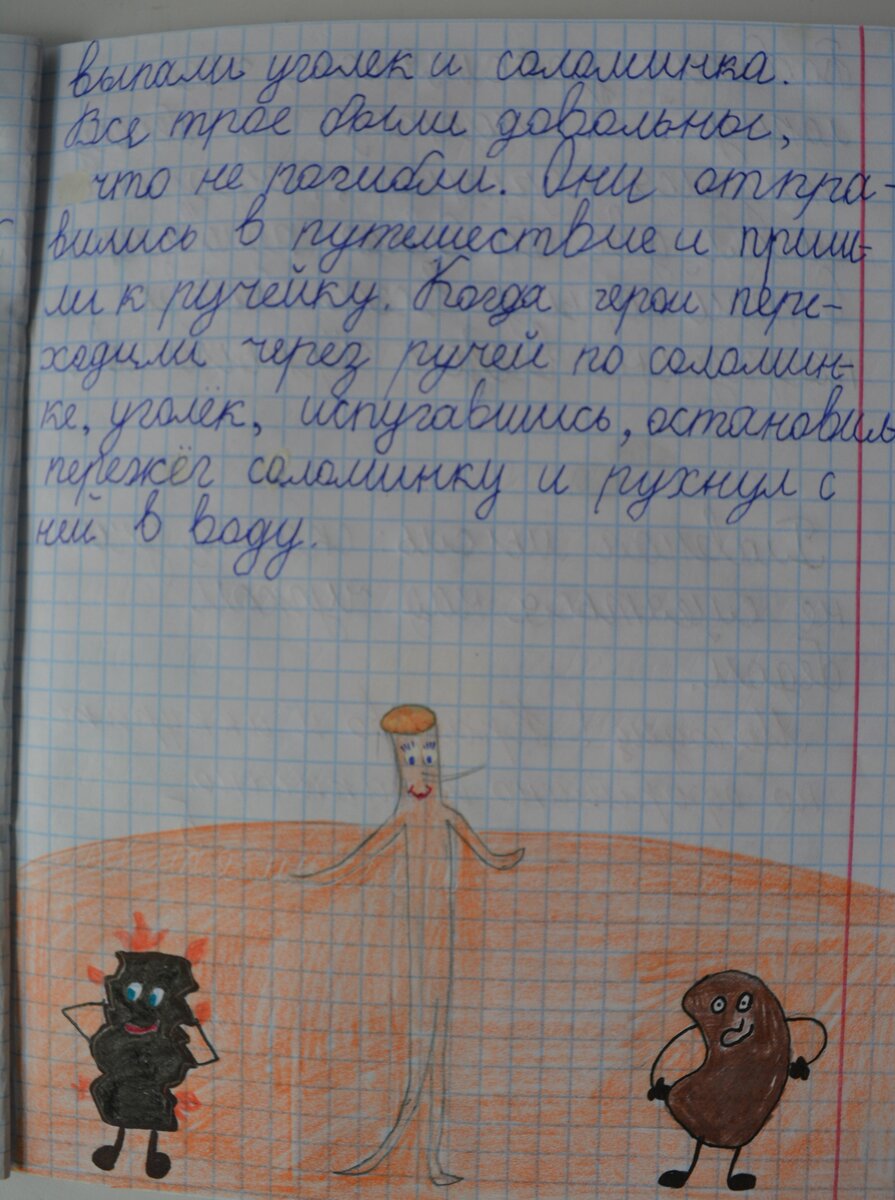 выпали уголек и соломинка.
Все трое были довольны,
что не погибли. Они отпра-
вились в путешествие и приш-
ли к ручейку. Когда герои пере-
ходили через ручей по соломин-
ке, уголёк, испугавшись, остановил
пережёг соломинку и рухнул с
ней в воду.